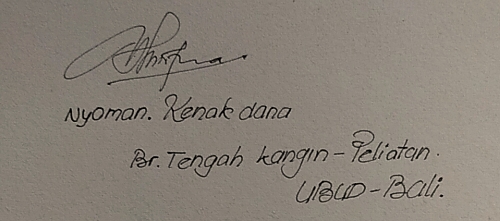 Nyoman. Kenak dana
Br. Tengah kangin - Peliatan.
UBUD - Bali.